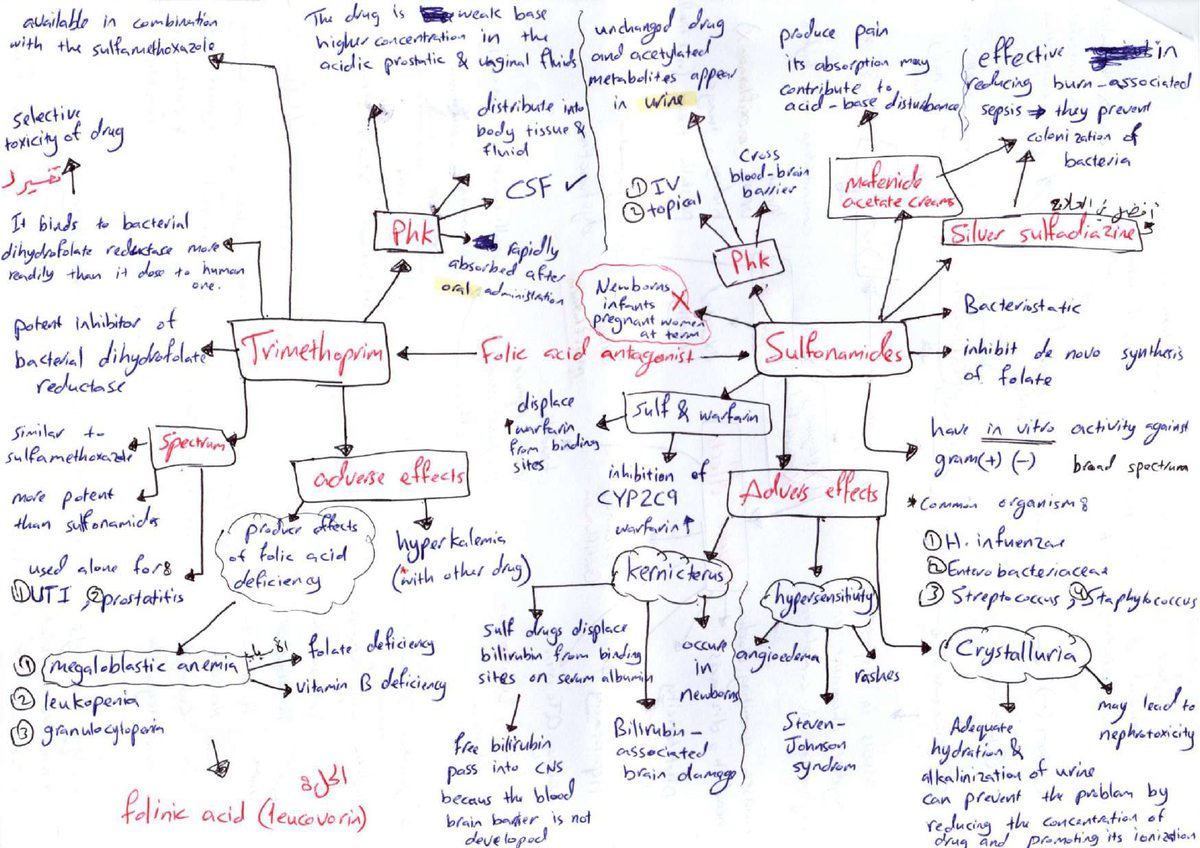 available in combination
with the sulfamethoxazole
The drug is weak base
higher concentration in the
acidic prostatic & vaginal fluids
unchanged drug
and acetylated
metabolites appear
in urine
produce pain
its absorption may
contribute to
acid-base disturbance
effective in
reducing burn-associated
sepsis → they prevent
colonization of
bacteria
selective
toxicity of drug
distribute into
body tissue &
fluid
CSF ✓
rapidly
absorbed after
oral administration
Phk
① IV
② topical
Cross
blood-brain
barrier
Phk
Mafenide
acetate creams
Silver sulfadiazine
It binds to bacterial
dihydrofolate reductase more
readily than it dose to human
one.
Newborns
infants
pregnant women
at term
X
potent inhibitor of
bacterial dihydrofolate
reductase
Trimethoprim
Folic acid antagonist
Sulfonamides
Bacteriostatic
inhibit de novo synthesis
of folate
Similar to
sulfamethoxazole
Spectrum
more potent
than sulfonamides
used alone for:
① UTI, ② prostatitis
adverse effects
produce effects
of folic acid
deficiency
hyperkalemia
(with other drug)
displace
↑ warfarin
from binding
sites
Sulf & warfarin
inhibition of
CYP2C9
warfarin ↑
have in vitro activity against
gram (+) (-) broad spectrum
* Common organism:
① H. infuenzae
② Enterobacteriaceae
③ Streptococcus, ④ Staphylococcus
Advers effects
kernicterus
hypersensitivity
Crystalluria
① megaloblastic anemia
② leukopenia
③ granulocytopenia
folate deficiency
vitamin B deficiency
الحل:
folinic acid (leucovorin)
Sulf drugs displace
bilirubin from binding
sites on serum albumin
free bilirubin
pass into CNS
becaus the blood
brain barier is not
developed
Bilirubin-
associated
brain damage
occure
in
newborns
angioedema
Steven-
Johnson
syndrom
rashes
Adequate
hydration &
alkalinization of urine
can prevent the problem by
reducing the concentration of
drug and promoting its ionization
may lead to
nephrotoxicity